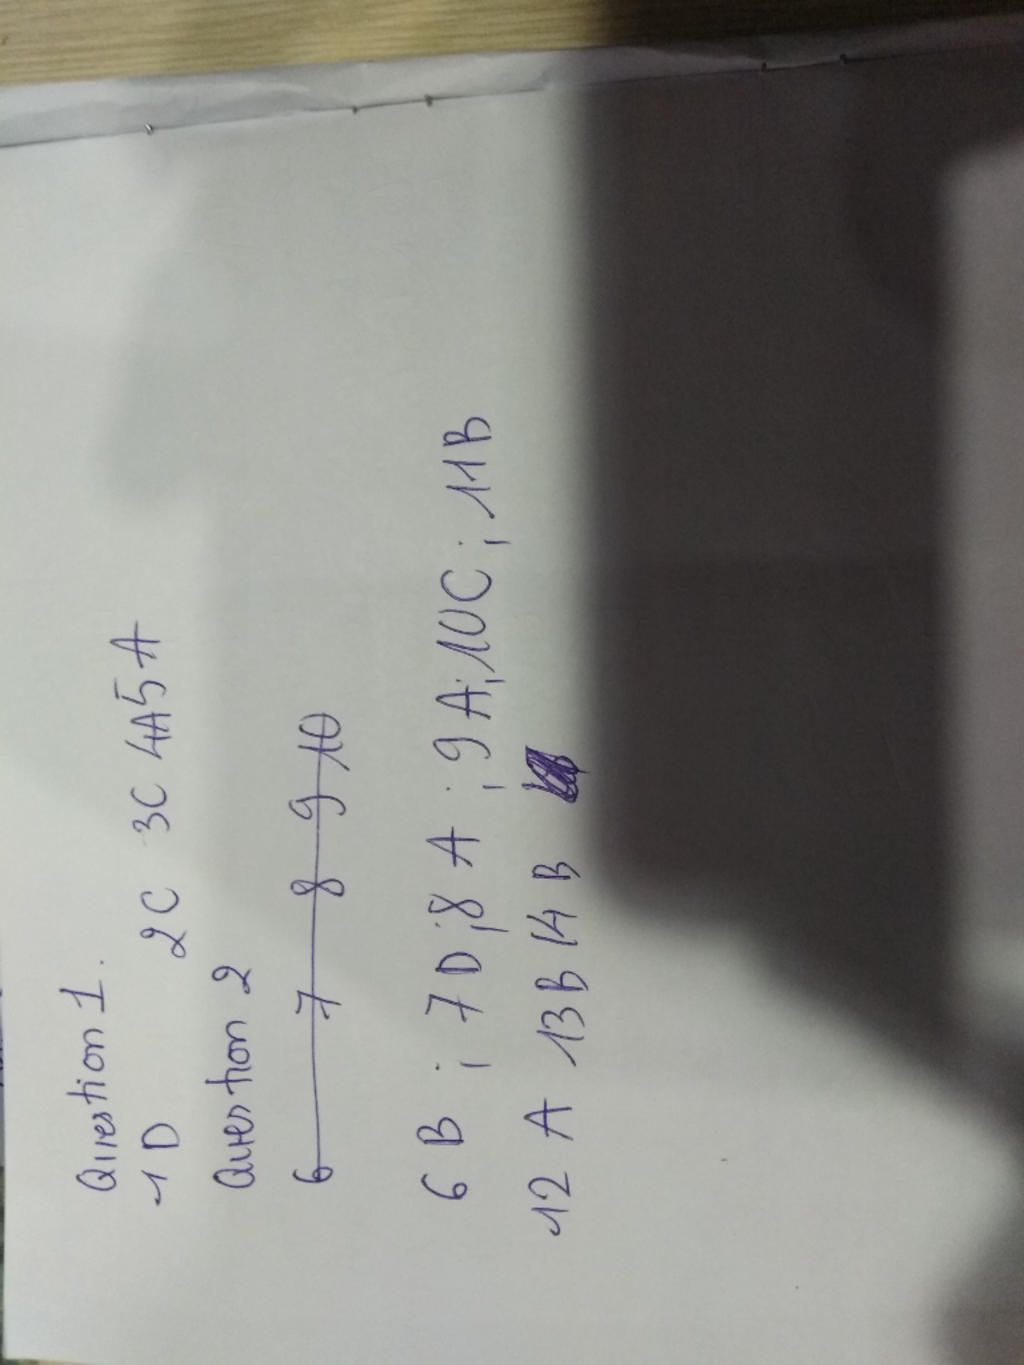 Question 1.
1D 2C 3C 4A 5A
Question 2
6 7 8 9 10
6 B ; 7 D ; 8 A ; 9 A ; 10C ; 11B
12 A 13B 14 B